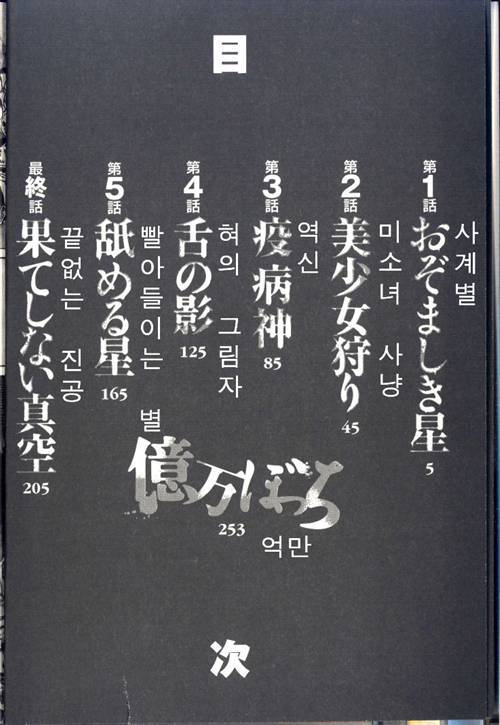 目
第1話
おぞましき星
5
사계별
第2話
美少女狩り
45
미소녀 사냥
第3話
疫病神
85
역신
第4話
舌の影
125
혀의 그림자
第5話
舐める星
165
빨아들이는 별
最終話
果てしない真空
205
끝없는 진공
億万ぼっち
253
억만
次